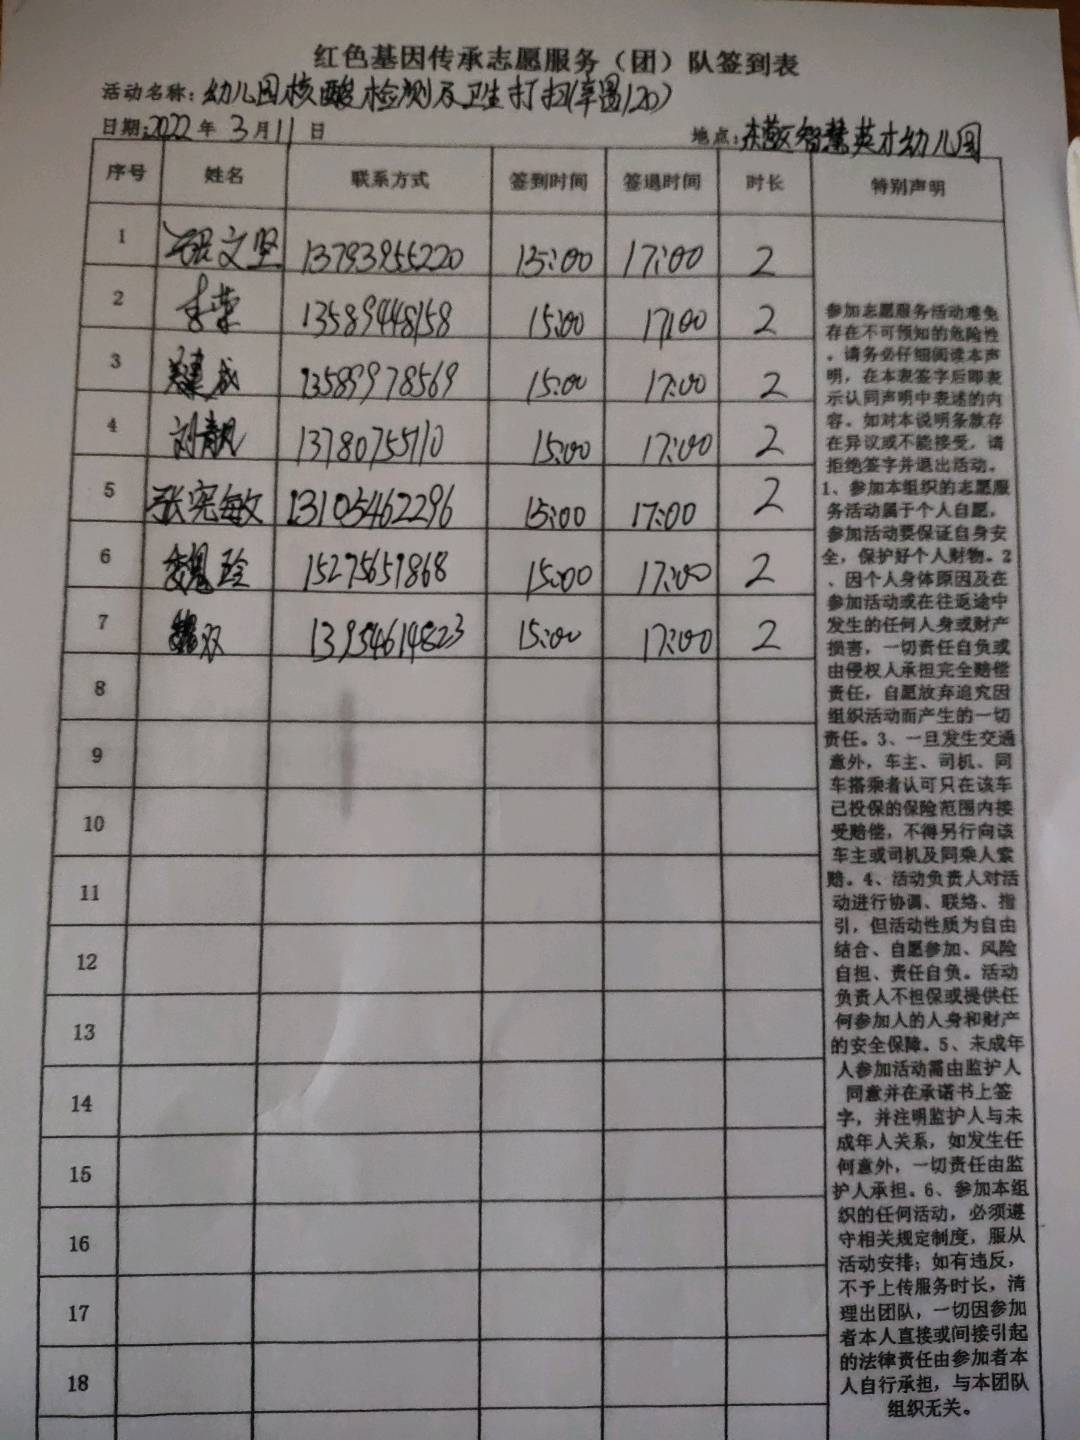 红色基因传承志愿服务（团）队签到表
活动名称：幼儿园核酸检测及卫生打扫(幸遇120)
日期：2022年3月11日 地点：智慧英才幼儿园
序号 姓名 联系方式 签到时间 签退时间 时长 特别声明
1 张文坚 13793955220 15:00 17:00 2
2 李荣 13589448158 15:00 17:00 2
3 13589978569 15:00 17:00 2
4 刘靓 13780755710 15:00 17:00 2
5 张宪敏 13105462296 15:00 17:00 2
6 魏玲 15275659868 15:00 17:00 2
7 13954614823 15:00 17:00 2
8
9
10
11
12
13
14
15
16
17
18
参加志愿服务活动难免
存在不可预知的危险性
，请务必仔细阅读本声
明，在本表签字后即表
示认同声明中表述的内
容。如对本说明条款存
在异议或不能接受，请
拒绝签字并退出活动。
1、参加本组织的志愿服
务活动属于个人自愿，
参加活动要保证自身安
全，保护好个人财物。2
、因个人身体原因及在
参加活动或在往返途中
发生的任何人身或财产
损害，一切责任自负或
由侵权人承担完全赔偿
责任，自愿放弃追究因
组织活动而产生的一切
责任。3、一旦发生交通
意外，车主、司机、同
车搭乘者认可只在该车
已投保的保险范围内接
受赔偿，不得另行向该
车主或司机及同乘人索
赔。4、活动负责人对活
动进行协调、联络、指
引，但活动性质为自由
结合、自愿参加、风险
自担、责任自负。活动
负责人不担保或提供任
何参加人的人身和财产
的安全保障。5、未成年
人参加活动需由监护人
同意并在承诺书上签
字，并注明监护人与未
成年人关系，如发生任
何意外，一切责任由监
护人承担。6、参加本组
织的任何活动，必须遵
守相关规定制度，服从
活动安排；如有违反，
不予上传服务时长，清
理出团队，一切因参加
者本人直接或间接引起
的法律责任由参加者本
人自行承担，与本团队
组织无关。